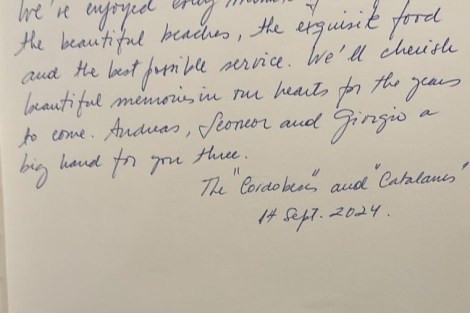 We've enjoyed every
the beautiful beaches, the exquisite food
and the best possible service. We'll cherish
beautiful memories in our hearts for the years
to come. Andreas, and Giorgio a
big hand for you three.
The "Cordobeses" and "Catalanes"
14 Sept. 2024.